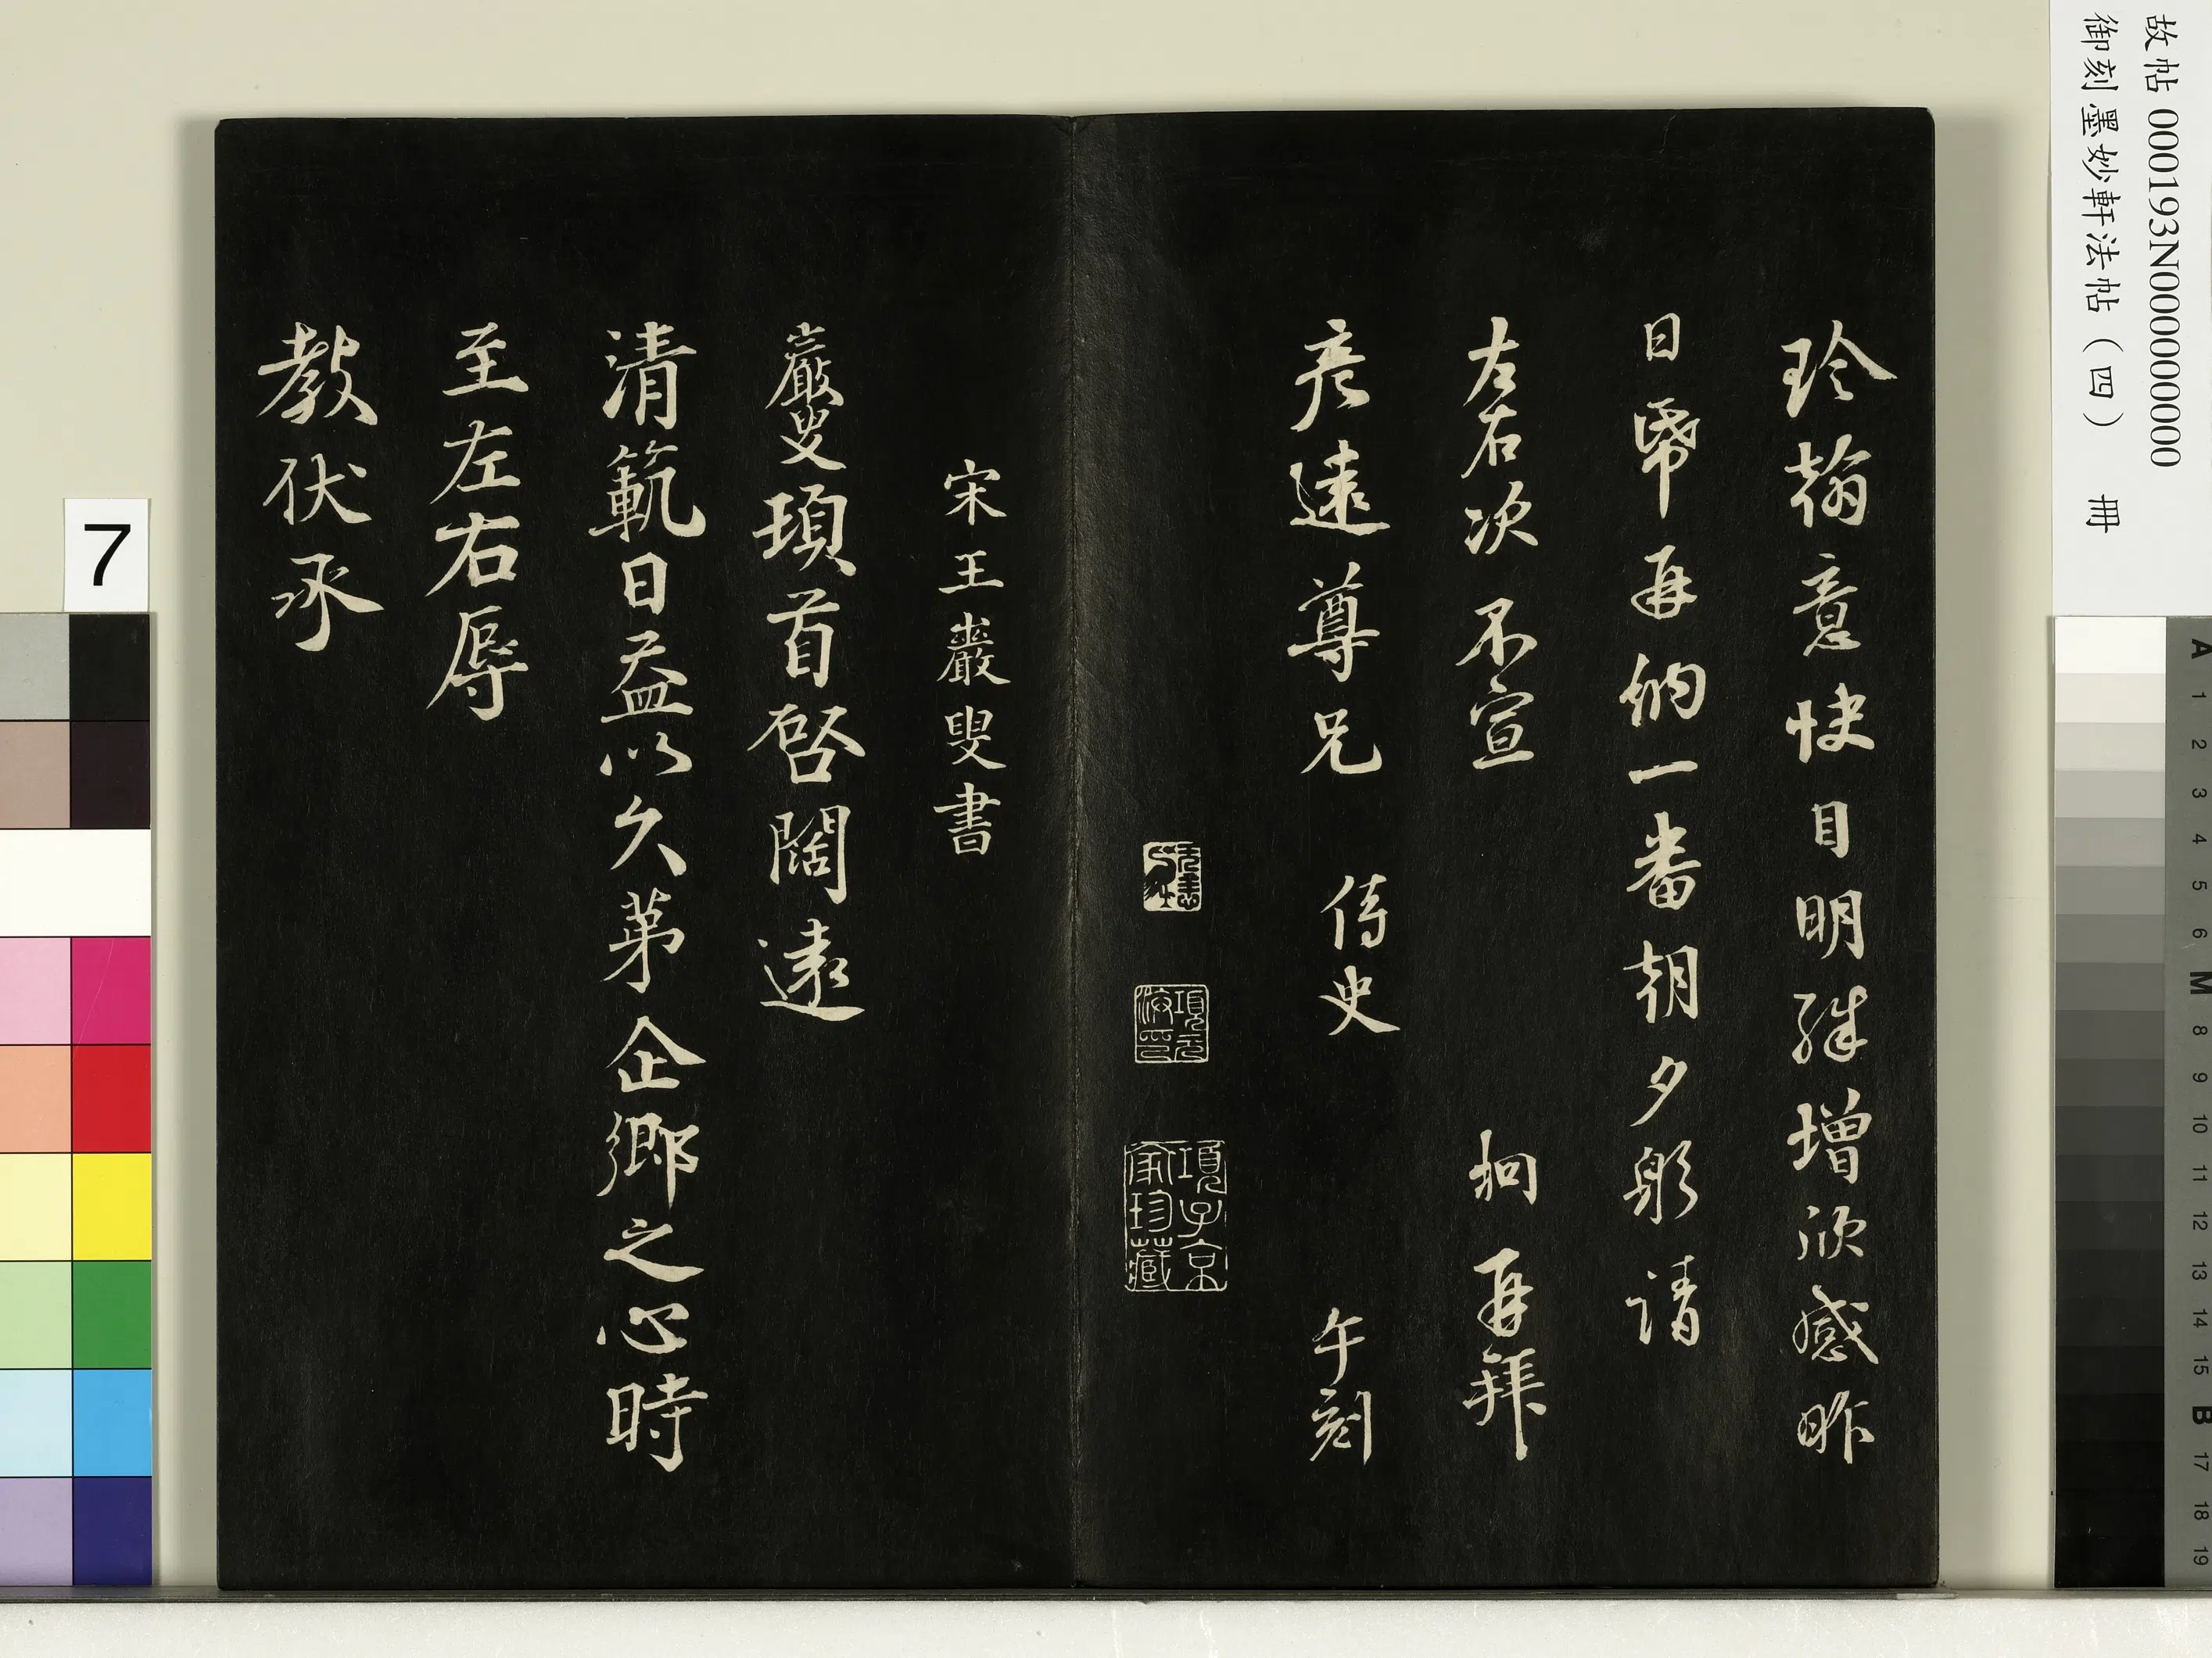 故帖 000193N000000000
御刻墨妙軒法帖（四） 冊
珍翰意快目明殊增欣感昨
日帋再納一番朝夕躬請
左右次不宣 絧再拜
彥遠尊兄 侍史 午刻
項元汴印
項子京家珍藏
宋王巖叟書
巖叟頊首啓闊遠
清範日益以久第企鄉之心時
至左右辱
教伏承
7
A 1 2 3 4 5 6 M 8 9 10 11 12 13 14 15 B 17 18 19